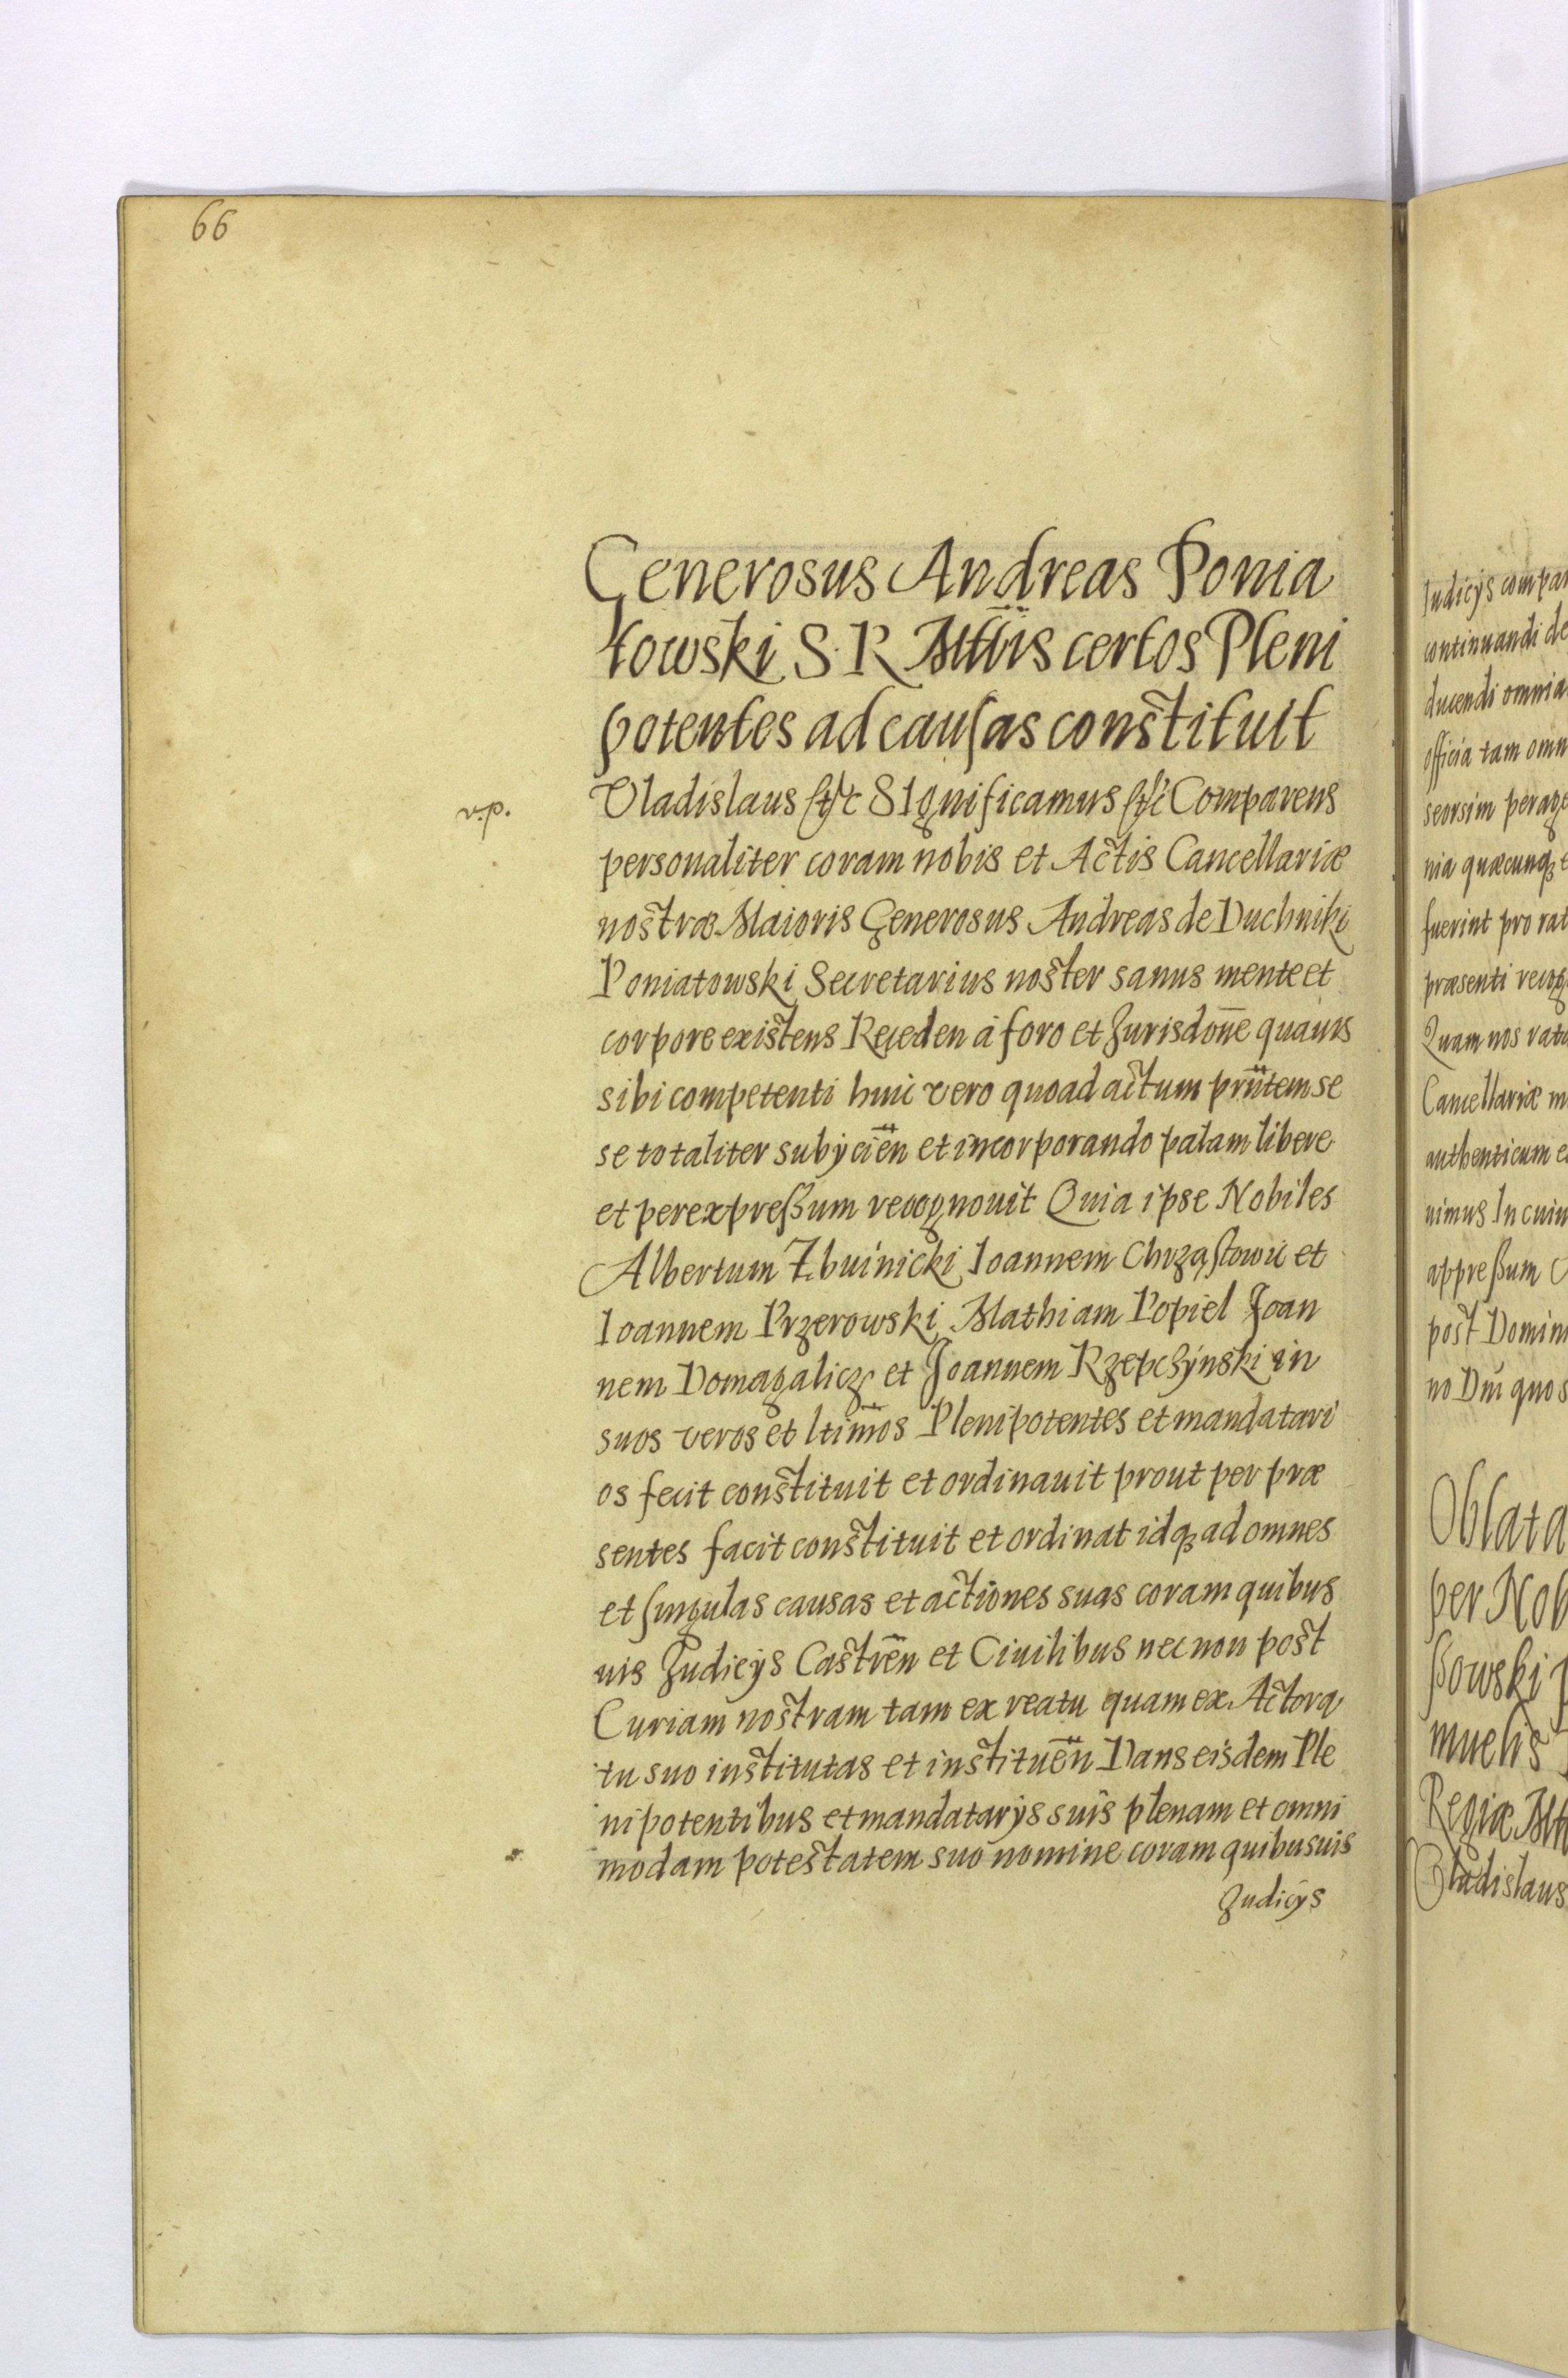 66
Generosus Andreas Ponia
towski S. R. Mttis certos Pleni
potentes ad causas constituit
Vladislaus etc Significamus etc Comparens
personaliter coram nobis et Actis Cancellariæ
nostræ Maioris Generosus Andreas de Duchniki
Poniatowski Secretarius noster sanus mente et
corpore existens Receden à foro et Jurisdone quauis
sibi competenti huic vero quoad actum prntem se
se totaliter subycien et incorporando palam libere
et per expreßum recognouit Quia ipse Nobiles
Albertum Zbuinicki Ioannem Chrząstowic et
Ioannem Przerowski Mathiam Popiel Joan
nem Domagalicz et Joannem Rzepchÿnski in
suos veros et ltimos Plenipotentes et mandatari
os fecit constituit et ordinauit prout per præ
sentes facit constituit et ordinat idq ad omnes
et singulas causas et actiones suas coram quibus
uis Judicÿs Castren et Ciuilibus nec non post
Curiam nostram tam ex reatu quam ex Actora
tu suo institutas et instituen Dans eisdem Ple
nipotentibus et mandatarÿs suis plenam et omni
modam potestatem suo nomine coram quibusuis
Judicÿs
Iudicÿs
continuandi de
ducendi omnia
officia tam
seorsim
nia quæcunq
fuerint pro
præsenti
Quam nos
Cancellariæ
authenticum
uimus In
appreßum
post
no Dni quos
Oblata
per
ßowski
muelis
Regiæ
Vladislaus